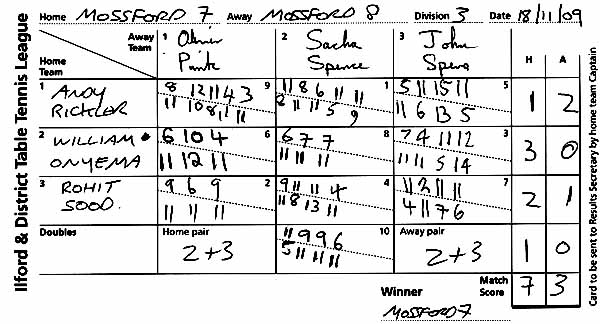 Home MOSSFORD 7 Away MOSSFORD 8 Division 3 Date 18/11/09
Ilford & District Table Tennis League
Away Team 1 2 Sacha Spence 3 John
Home Team H A
1 ANDY RICKLER 9 1 5 1 2
8 12 11 4 3 11 8 6 11 11 5 11 15 11
11 10 8 11 11 8 11 11 5 9 11 6 13 5
2 WILLIAM ONYEMA 6 8 3 3 0
6 10 4 6 7 7 7 4 11 12
11 12 11 11 11 11 11 11 5 14
3 ROHIT SOOD 2 4 7 2 1
9 6 9 9 11 11 4 11 2 11 11
11 11 11 11 8 13 11 4 11 7 6
Doubles Home pair 2+3 10 Away pair 2+3 1 0
11 9 9 6
5 11 11 11
Winner MOSSFORD 7 Match Score 7 3
Card to be sent to Results Secretary by home team Captain